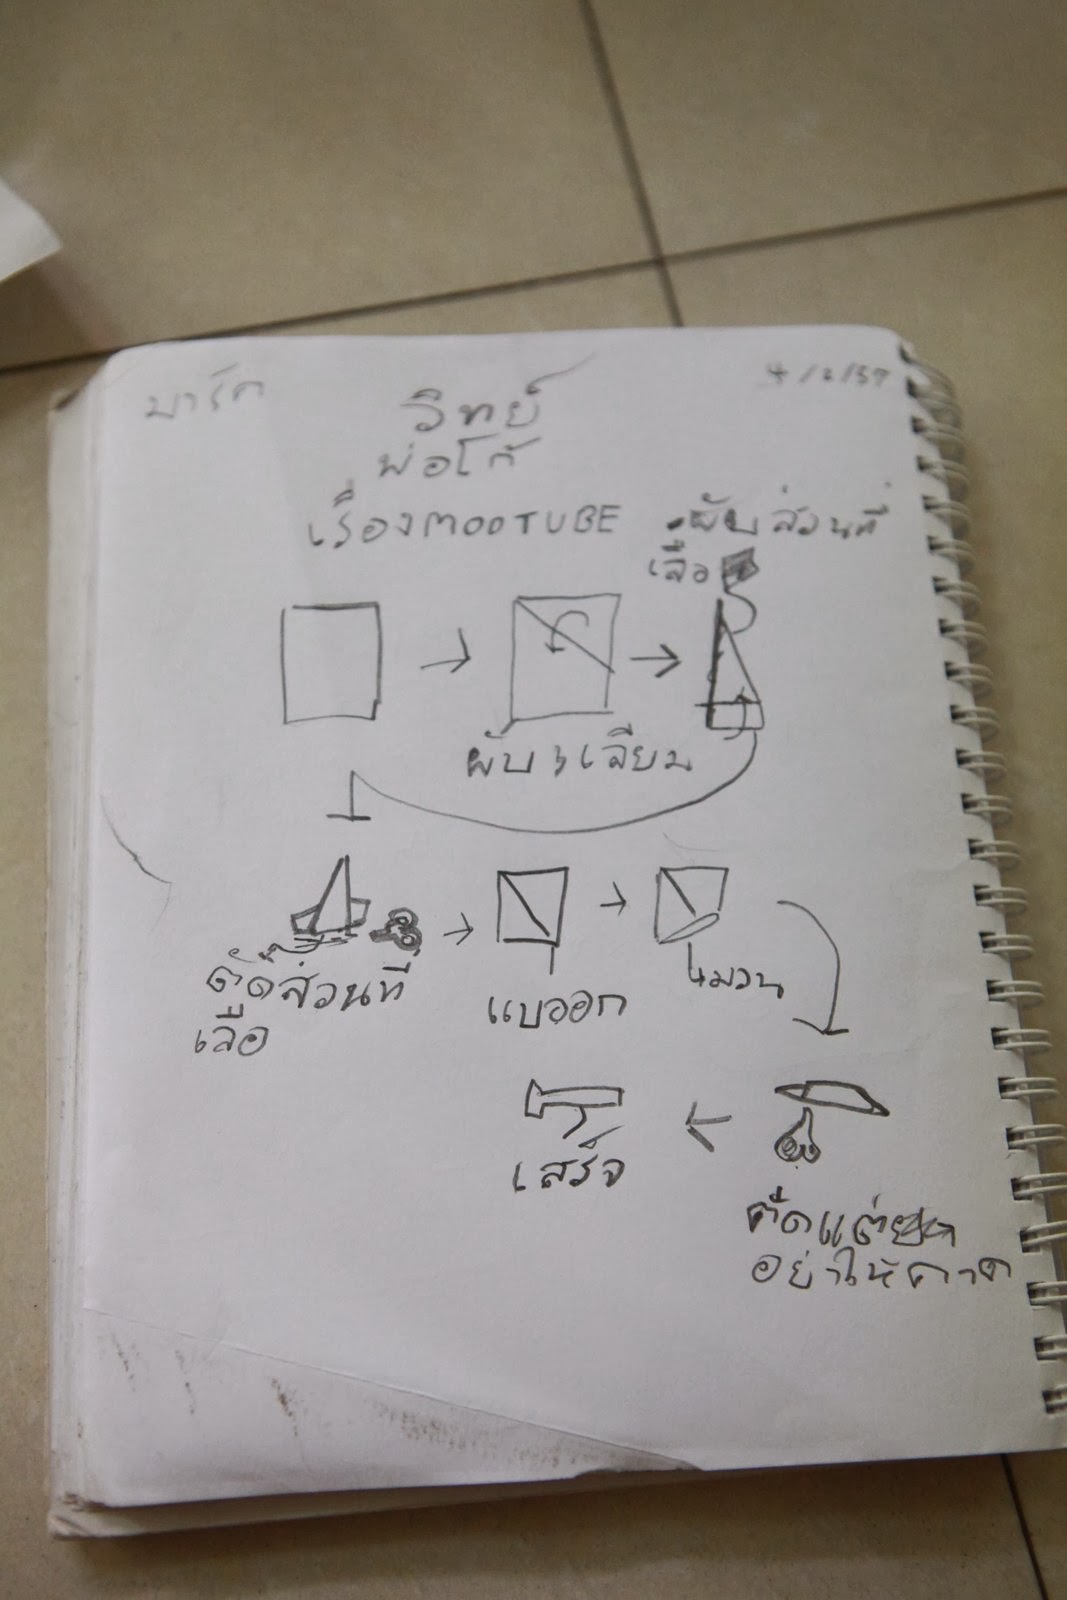 บาร์ค
4/2/57
วิทย์
พ่อโก้
เรื่องMOOTUBE
พับส่วนที่
เลือ
พับ 3 เลียม
ตัดส่วนที่
เลือ
แบออก
ม้วน
ตัดแต่
อย่าให้ขาด
เสร็จ